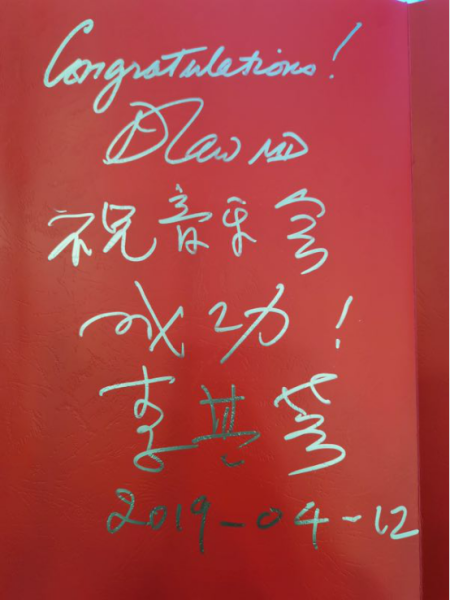 Congratulations!
MD
祝音乐会
成功!
李其芳
2019-04-12